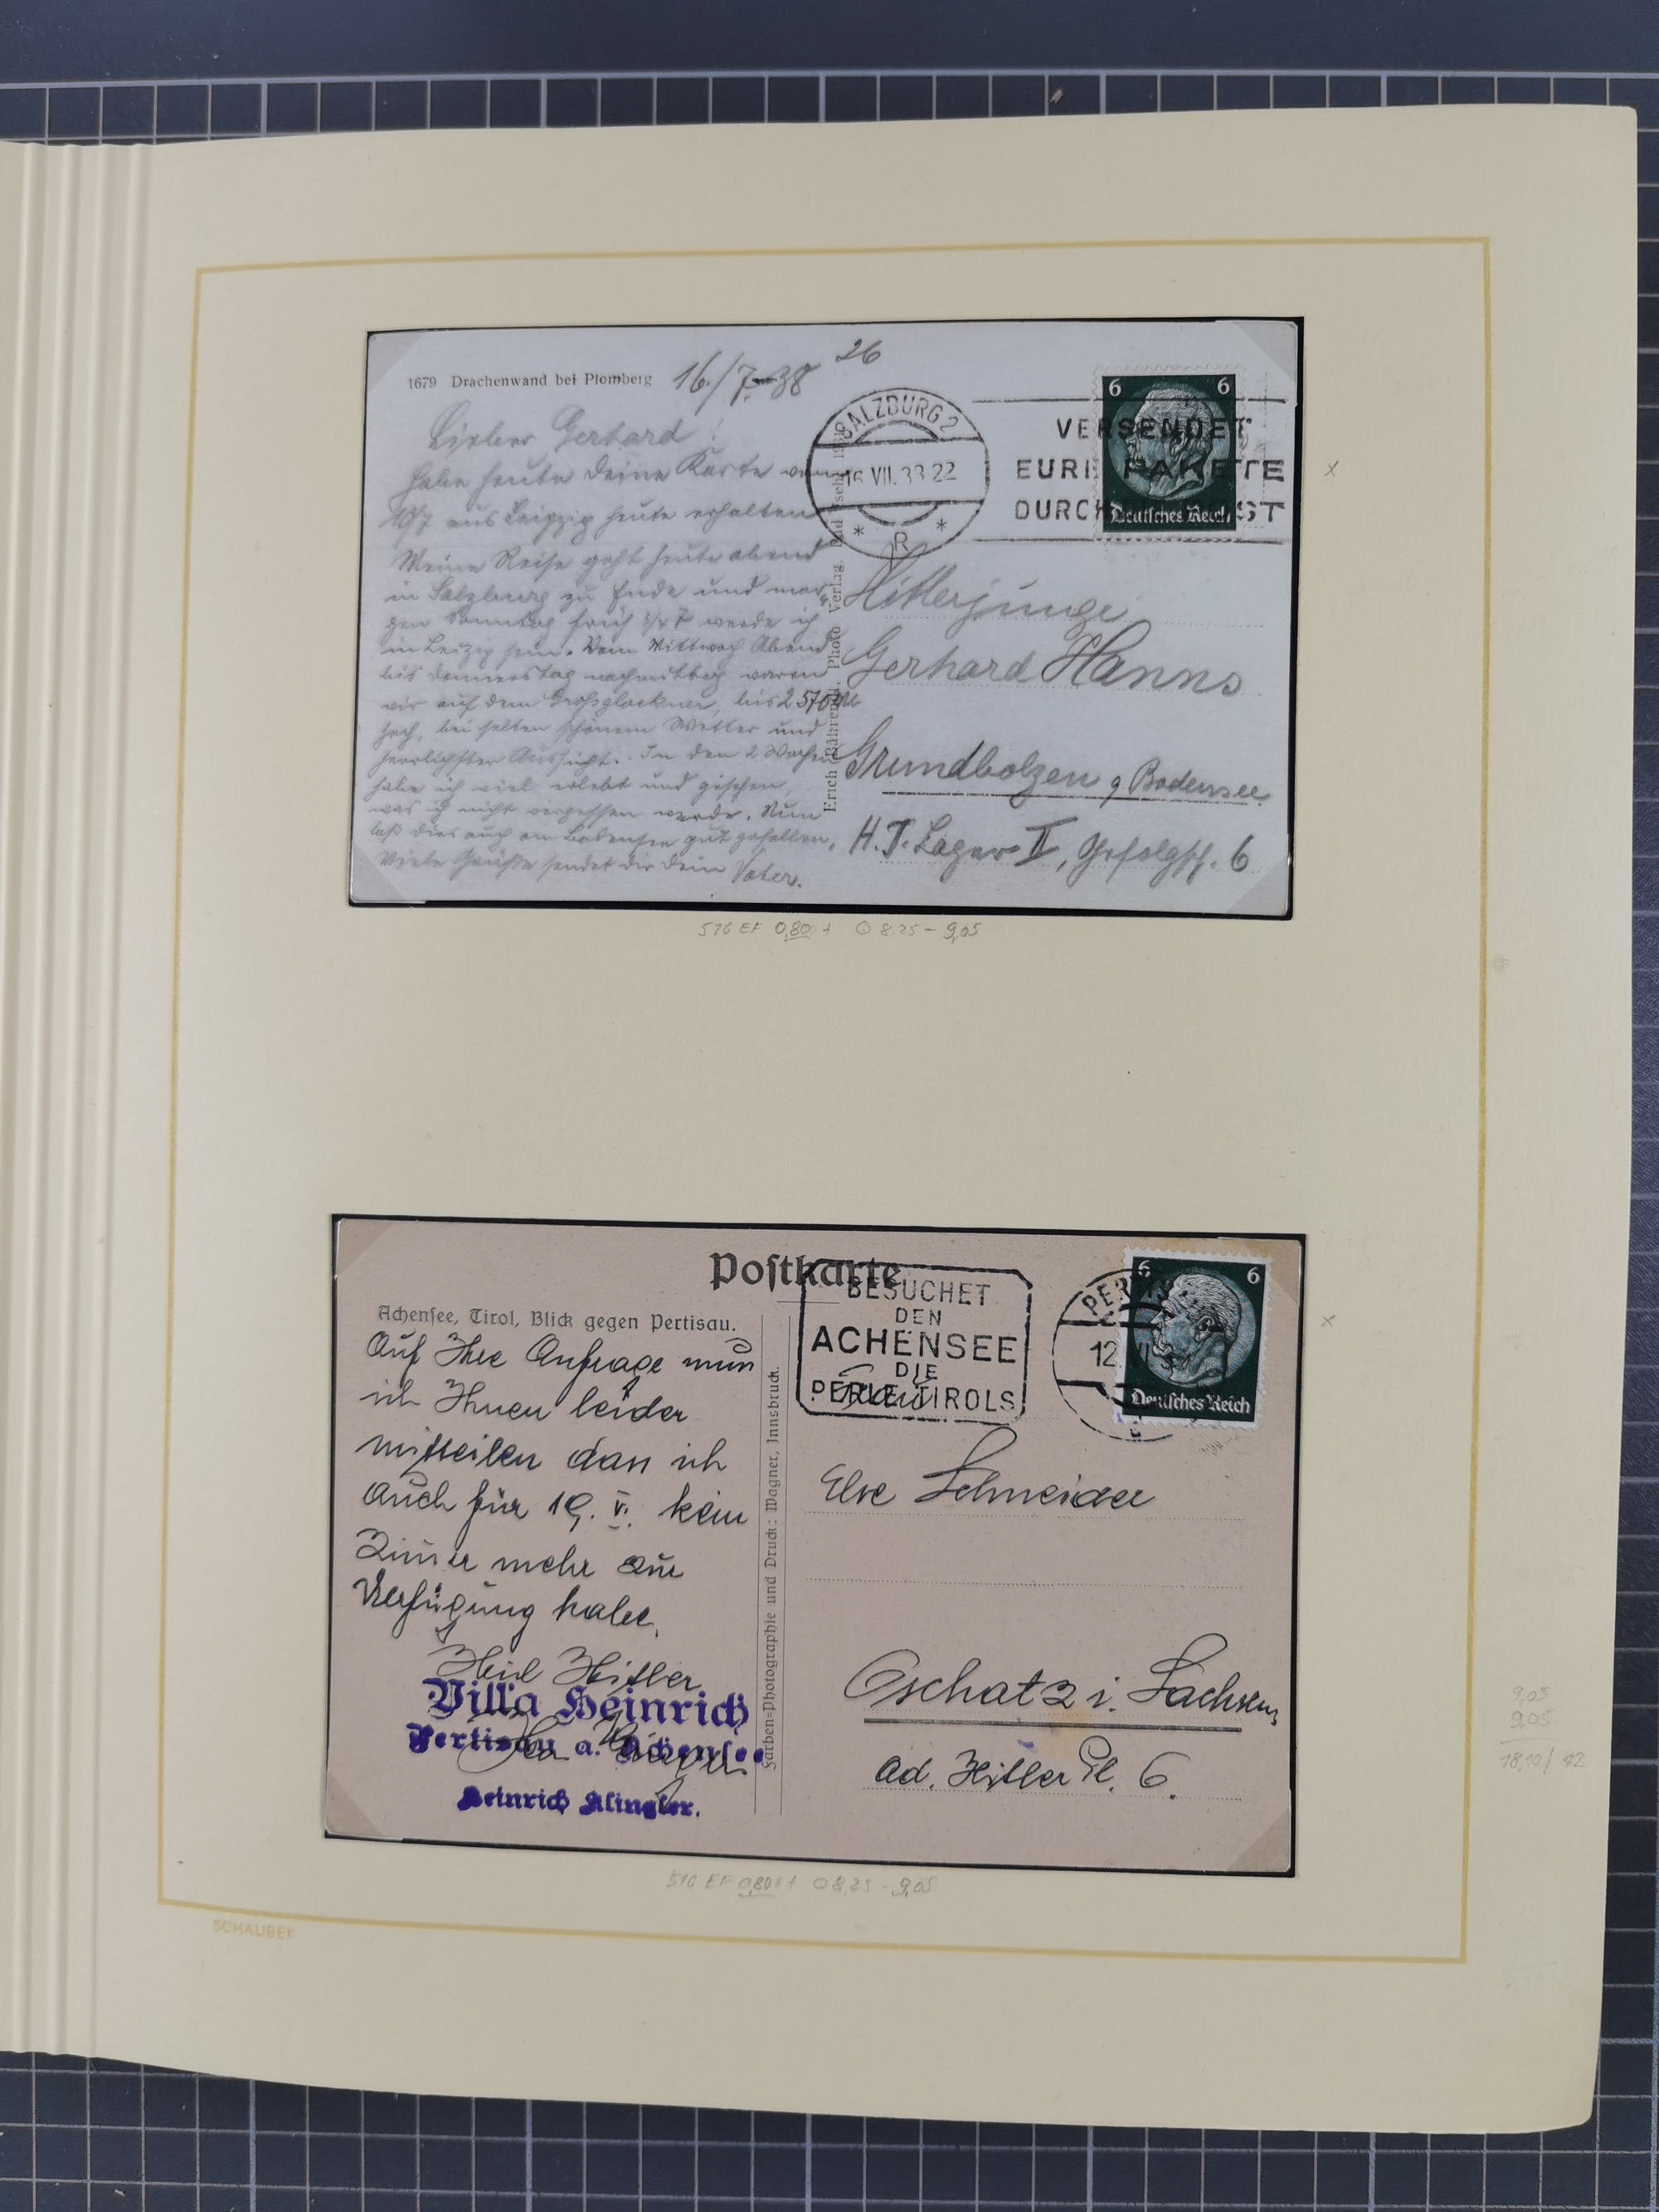 1679 Drachenwand bei Plomberg
16./7.38
26
Lieber Gerhard!
habe heute deine Karte vom
10/7 aus Leipzig heute erhalten
Meine Reise geht heute abend
in Salzburg zu Ende und mor-
gen Sonntag früh 3/4 7 werde ich
in Leipzig sein. Vom Mittwoch Abend
bis Donnerstag nachmittag waren
wir auf dem Grossglockner, bis
hoch, bei selten schönem Wetter und
herrlichster Aussicht. In den 2 Wochen
habe ich viel erlebt und gesehen,
was ich nicht vergessen werde. Nun
laß dirs auch am Bodensee gut gefallen.
Viele Grüße sendet dir dein Vater.
Erich Photo Verlag, Bad
SALZBURG 2
16 VII. 38 22
* R *
VERSENDET
EURE PAKETE
DURCH ST
6 6
Deutsches Reich
Hitlerjunge
Gerhard Hanns
Grundbolzen a Bodensee
H.J. Lager II, Gefolgsch. 6
x
516 EF 0,80 + ⊙ 8.25 - 9,05
Postkarte
Achensee, Tirol, Blick gegen Pertisau.
Auf Ihre Anfrage muss
ich Ihnen leider
mitteilen dass ich
auch für 19. V. kein
Zimmer mehr zur
Verfügung habe.
Heil Hitler
Villa Heinrich
Pertisau a. Achensee
Heinrich Klingler.
Farben-Photographie und Druck: Wagner, Innsbruck.
BESUCHET
DEN
ACHENSEE
DIE
PERLE TIROLS
PERTIS
12
6 6
Deutsches Reich
Else Schneider
Oschatz i. Sachsen
Ad. Hitler Pl. 6.
x
516 EF 0,80 + ⊙ 8,25 - 9,05
9,05
9,05
18,10/ 42
SCHAUBEK